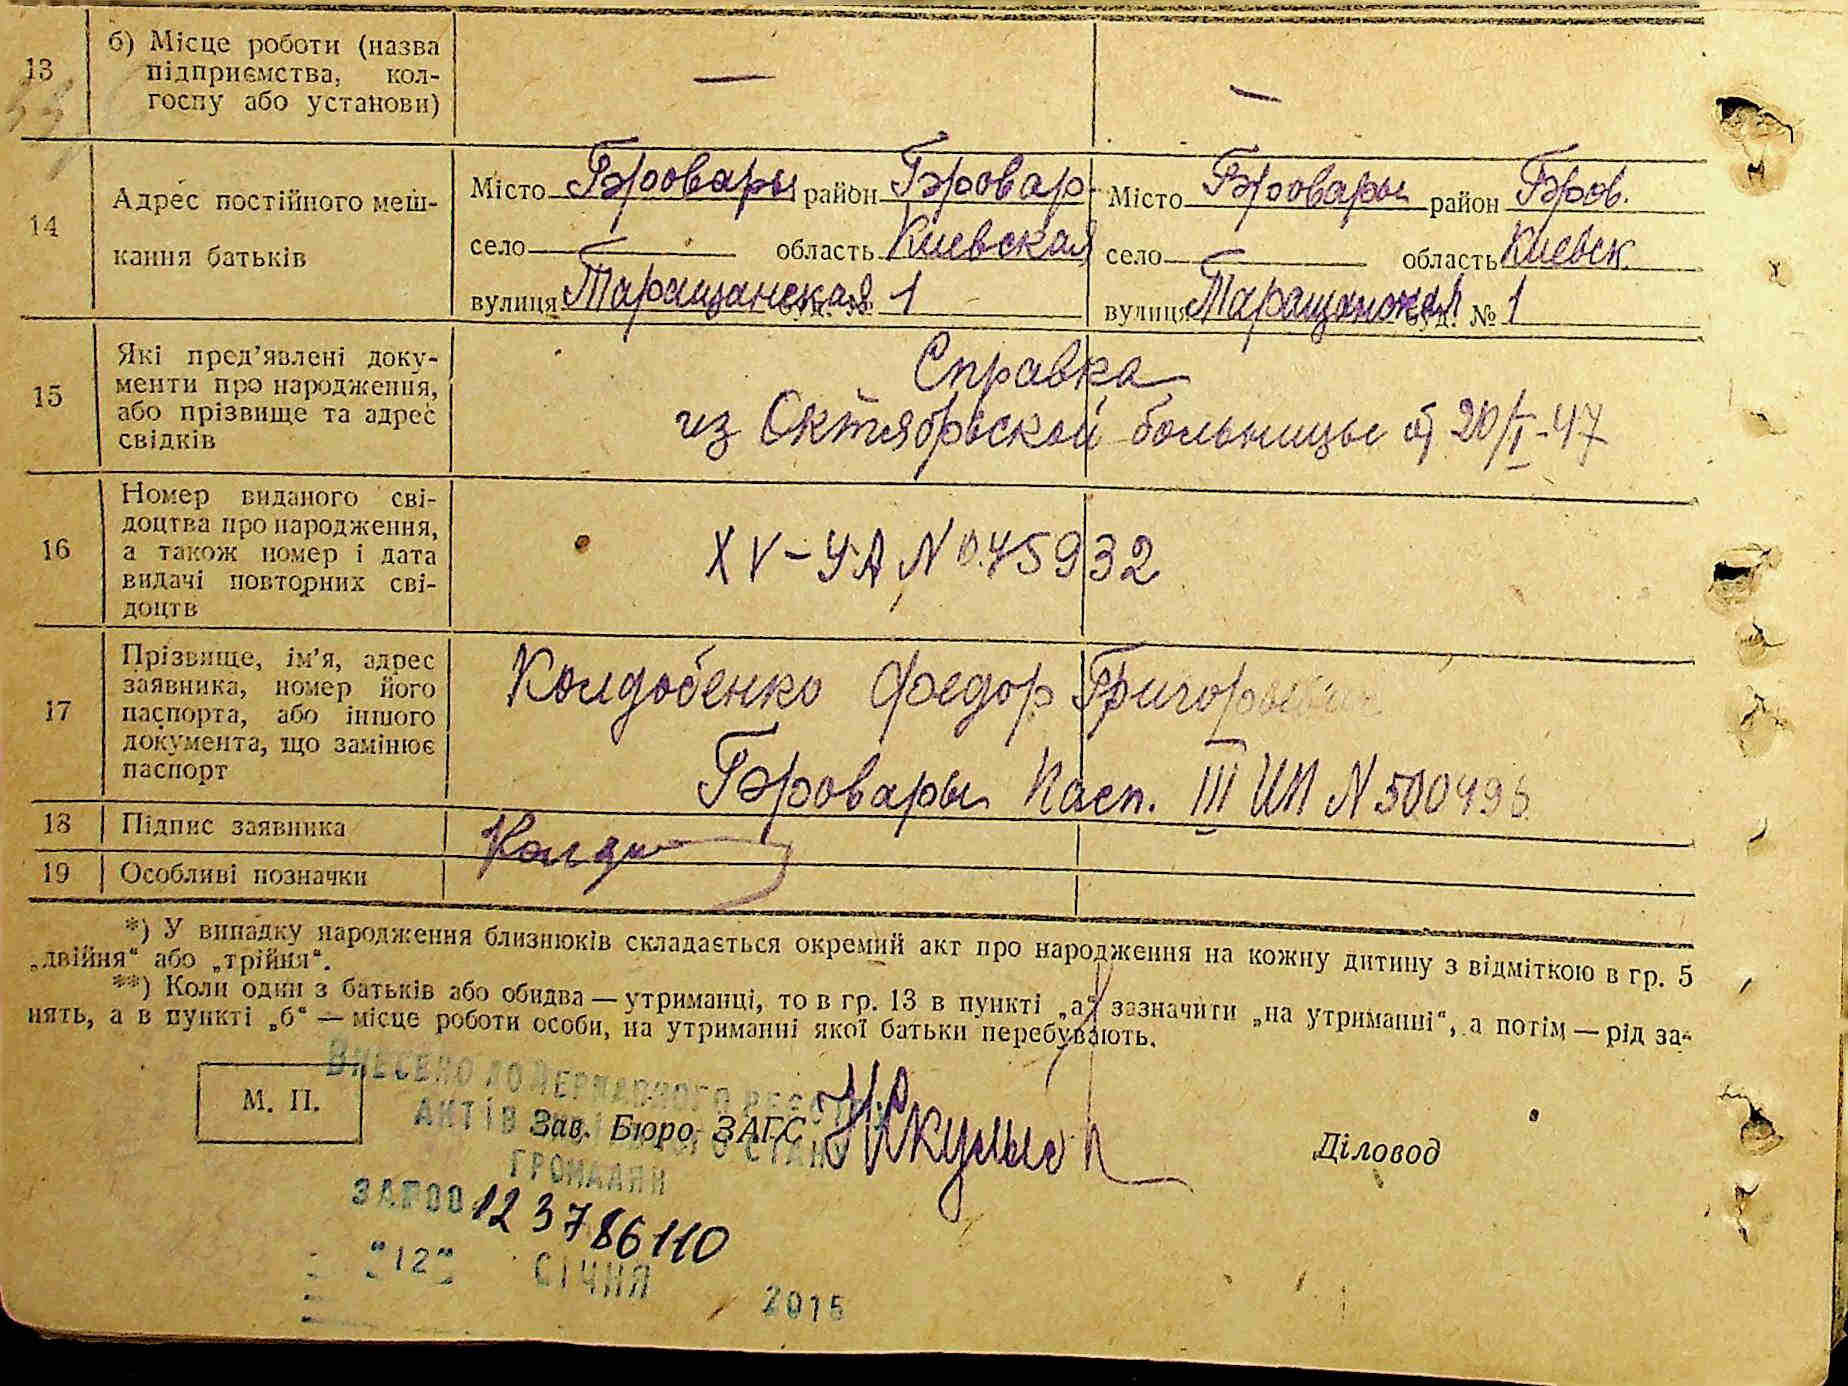 13
б) Місце роботи (назва
підприємства, кол-
госпу або установи)
—
—
14
Адрес постійного меш-
кання батьків
Місто Бровары район Бровар.
село — область Киевская
вулиця Таращанская 1
Місто Бровары район Бров.
село — область Киевск.
вулиця Таращанская буд. № 1
15
Які пред'явлені доку-
менти про народження,
або прізвище та адрес
свідків
Справка
из Октябрьской больницы от 20/I-47
16
Номер виданого сві-
доцтва про народження,
а також номер і дата
видачі повторних сві-
доцтв
XV-УА N 045932
17
Прізвище, ім'я, адрес
заявника, номер його
паспорта, або іншого
документа, що замінює
паспорт
Колдобенко Федор Григорьевич
Бровары Пасп. III ИП N 500496
18
Підпис заявника
19
Особливі позначки
*) У випадку народження близнюків складається окремий акт про народження на кожну дитину з відміткою в гр. 5
„двійня“ або „трійня“.
**) Коли один з батьків або обидва — утриманці, то в гр. 13 в пункті „а“ зазначити „на утриманні“, а потім — рід за-
нять, а в пункті „б“ — місце роботи особи, на утриманні якої батьки перебувають.
М. П.
ВНЕСЕНО ДО ДЕРЖАВНОГО РЕЄСТРУ
АКТІВ ЦИВІЛЬНОГО СТАНУ
ГРОМАДЯН
Зав. Бюро ЗАГС
Діловод
ЗА №00 123786110
"12" СІЧНЯ 2015